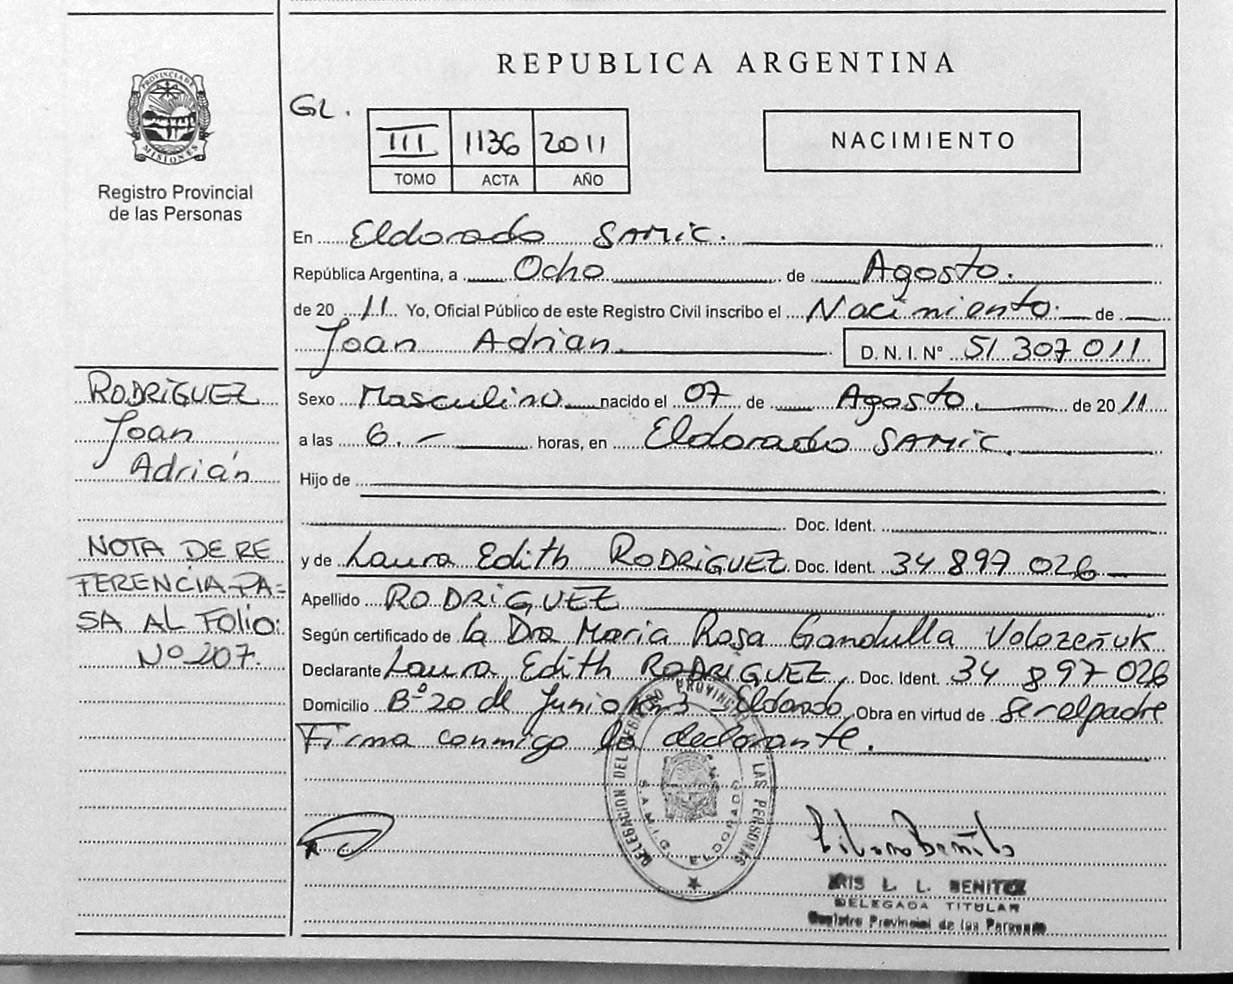 REPUBLICA ARGENTINA
PROVINCIA DE MISIONES
Registro Provincial
de las Personas
GL.
III 1136 2011
TOMO ACTA AÑO
NACIMIENTO
En Eldorado SAMIC.
República Argentina, a Ocho de Agosto.
de 20 11 Yo, Oficial Público de este Registro Civil inscribo el Nacimiento. de
Joan Adrian D. N. I. N° 51 307 011
RODRIGUEZ
Joan
Adrián
NOTA DE RE
FERENCIA PA-
SA AL FOLIO:
Nº 207.
Sexo Masculino nacido el 07 de Agosto. de 20 11
a las 6.- horas, en Eldorado SAMIC.
Hijo de
Doc. Ident.
y de Laura Edith RODRIGUEZ Doc. Ident. 34 897 026
Apellido RODRIGUEZ
Según certificado de la Dra Maria Rosa Gandulla Volozeñuk
Declarante Laura Edith RODRIGUEZ, Doc. Ident. 34 897 026
Domicilio Bº 20 de Junio Km3 Eldorado, Obra en virtud de Ser el padre
Firma conmigo la declarante.
DELEGACION DEL REGISTRO PROVINCIAL LAS PERSONAS
S.A.M.I.C. ELDORADO
IRIS L. L. BENITEZ
DELEGADA TITULAR
Registro Provincial de las Personas